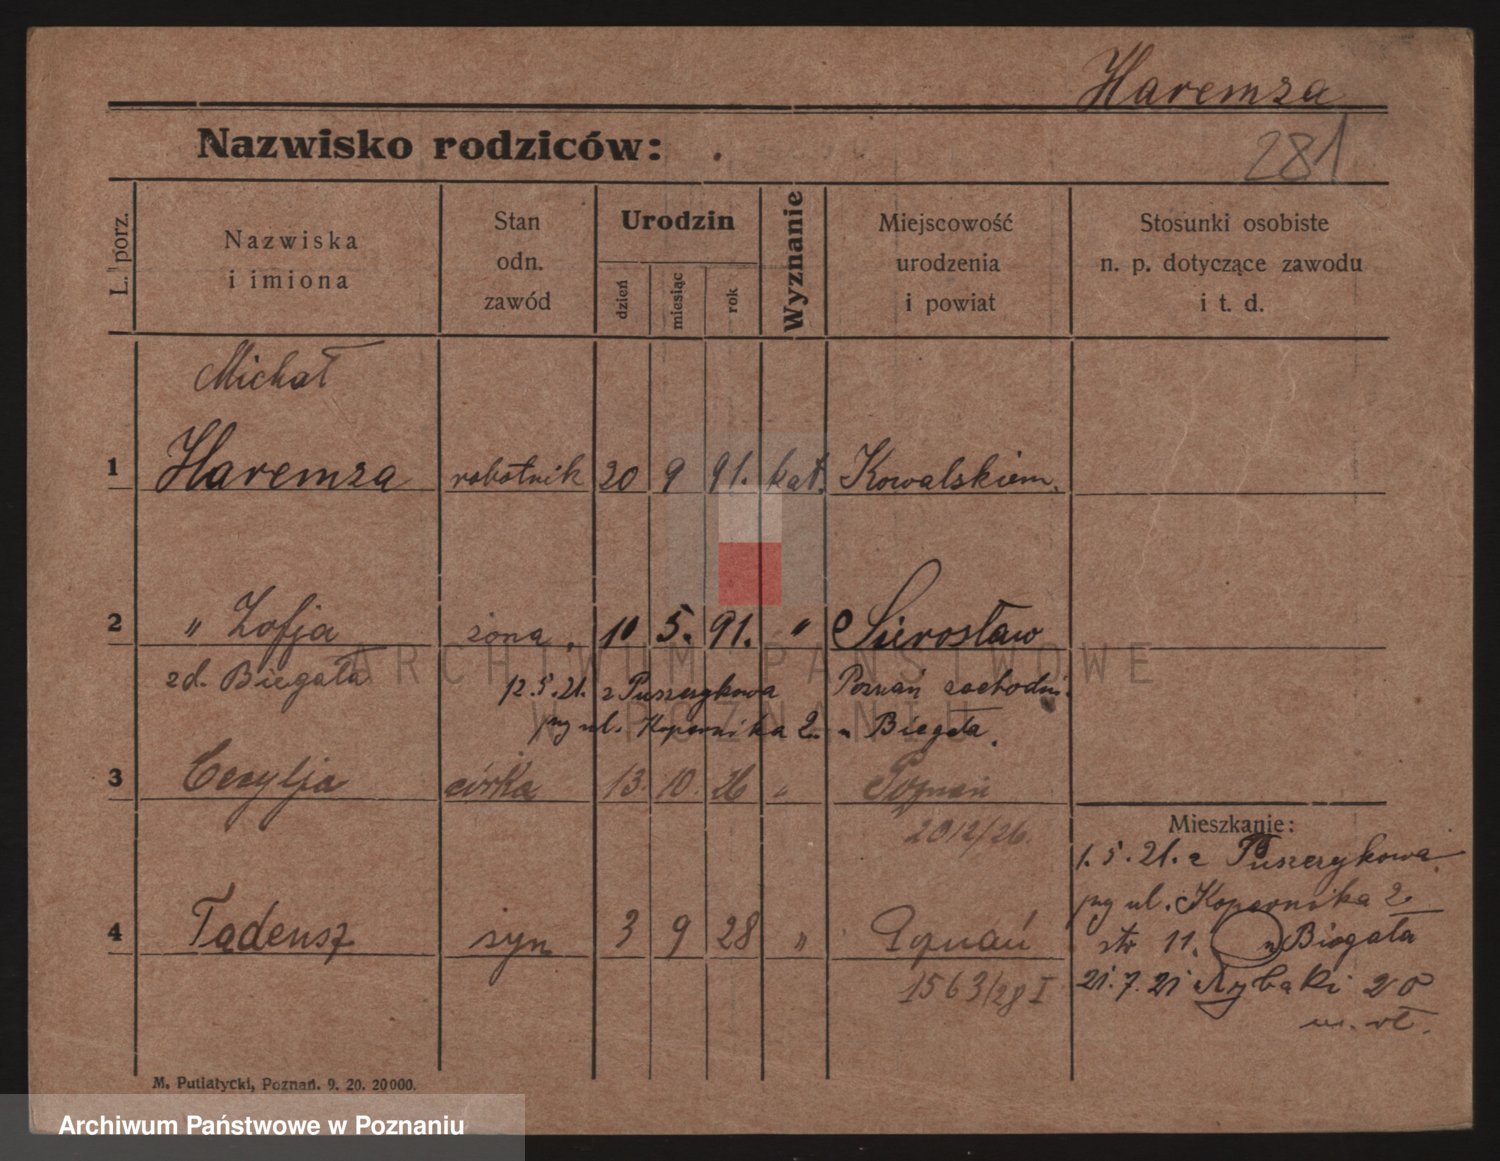 Haremza
Nazwisko rodziców:
281
L. porz.
Nazwiska
i imiona
Stan
odn.
zawód
Urodzin
dzień
miesiąc
rok
Wyznanie
Miejscowość
urodzenia
i powiat
Stosunki osobiste
n. p. dotyczące zawodu
i t. d.
Michał
1 Haremza robotnik 20 9 91. kat. Kowalskiem.
2 " Zofja żona. 10 5. 91. " Sierosław
zd. Biegała 12.5.21. z Puszczykowa Poznań zachodni.
ul. Kopernika 2. u Biegała.
3 Cecylja córka 13 10 26 " Poznań
2012/26.
Mieszkanie:
1.5.21. z Puszczykowa
ul. Kopernika 2
4 Tadeusz syn 3 9 28 " Poznań
str 11. u Biegała
1563/28 I
21.7.21 Rybaki 20
M. Putiatycki, Poznań. 9. 20. 20000.
ARCHIWUM PAŃSTWOWE
W POZNANIU
Archiwum Państwowe w Poznaniu